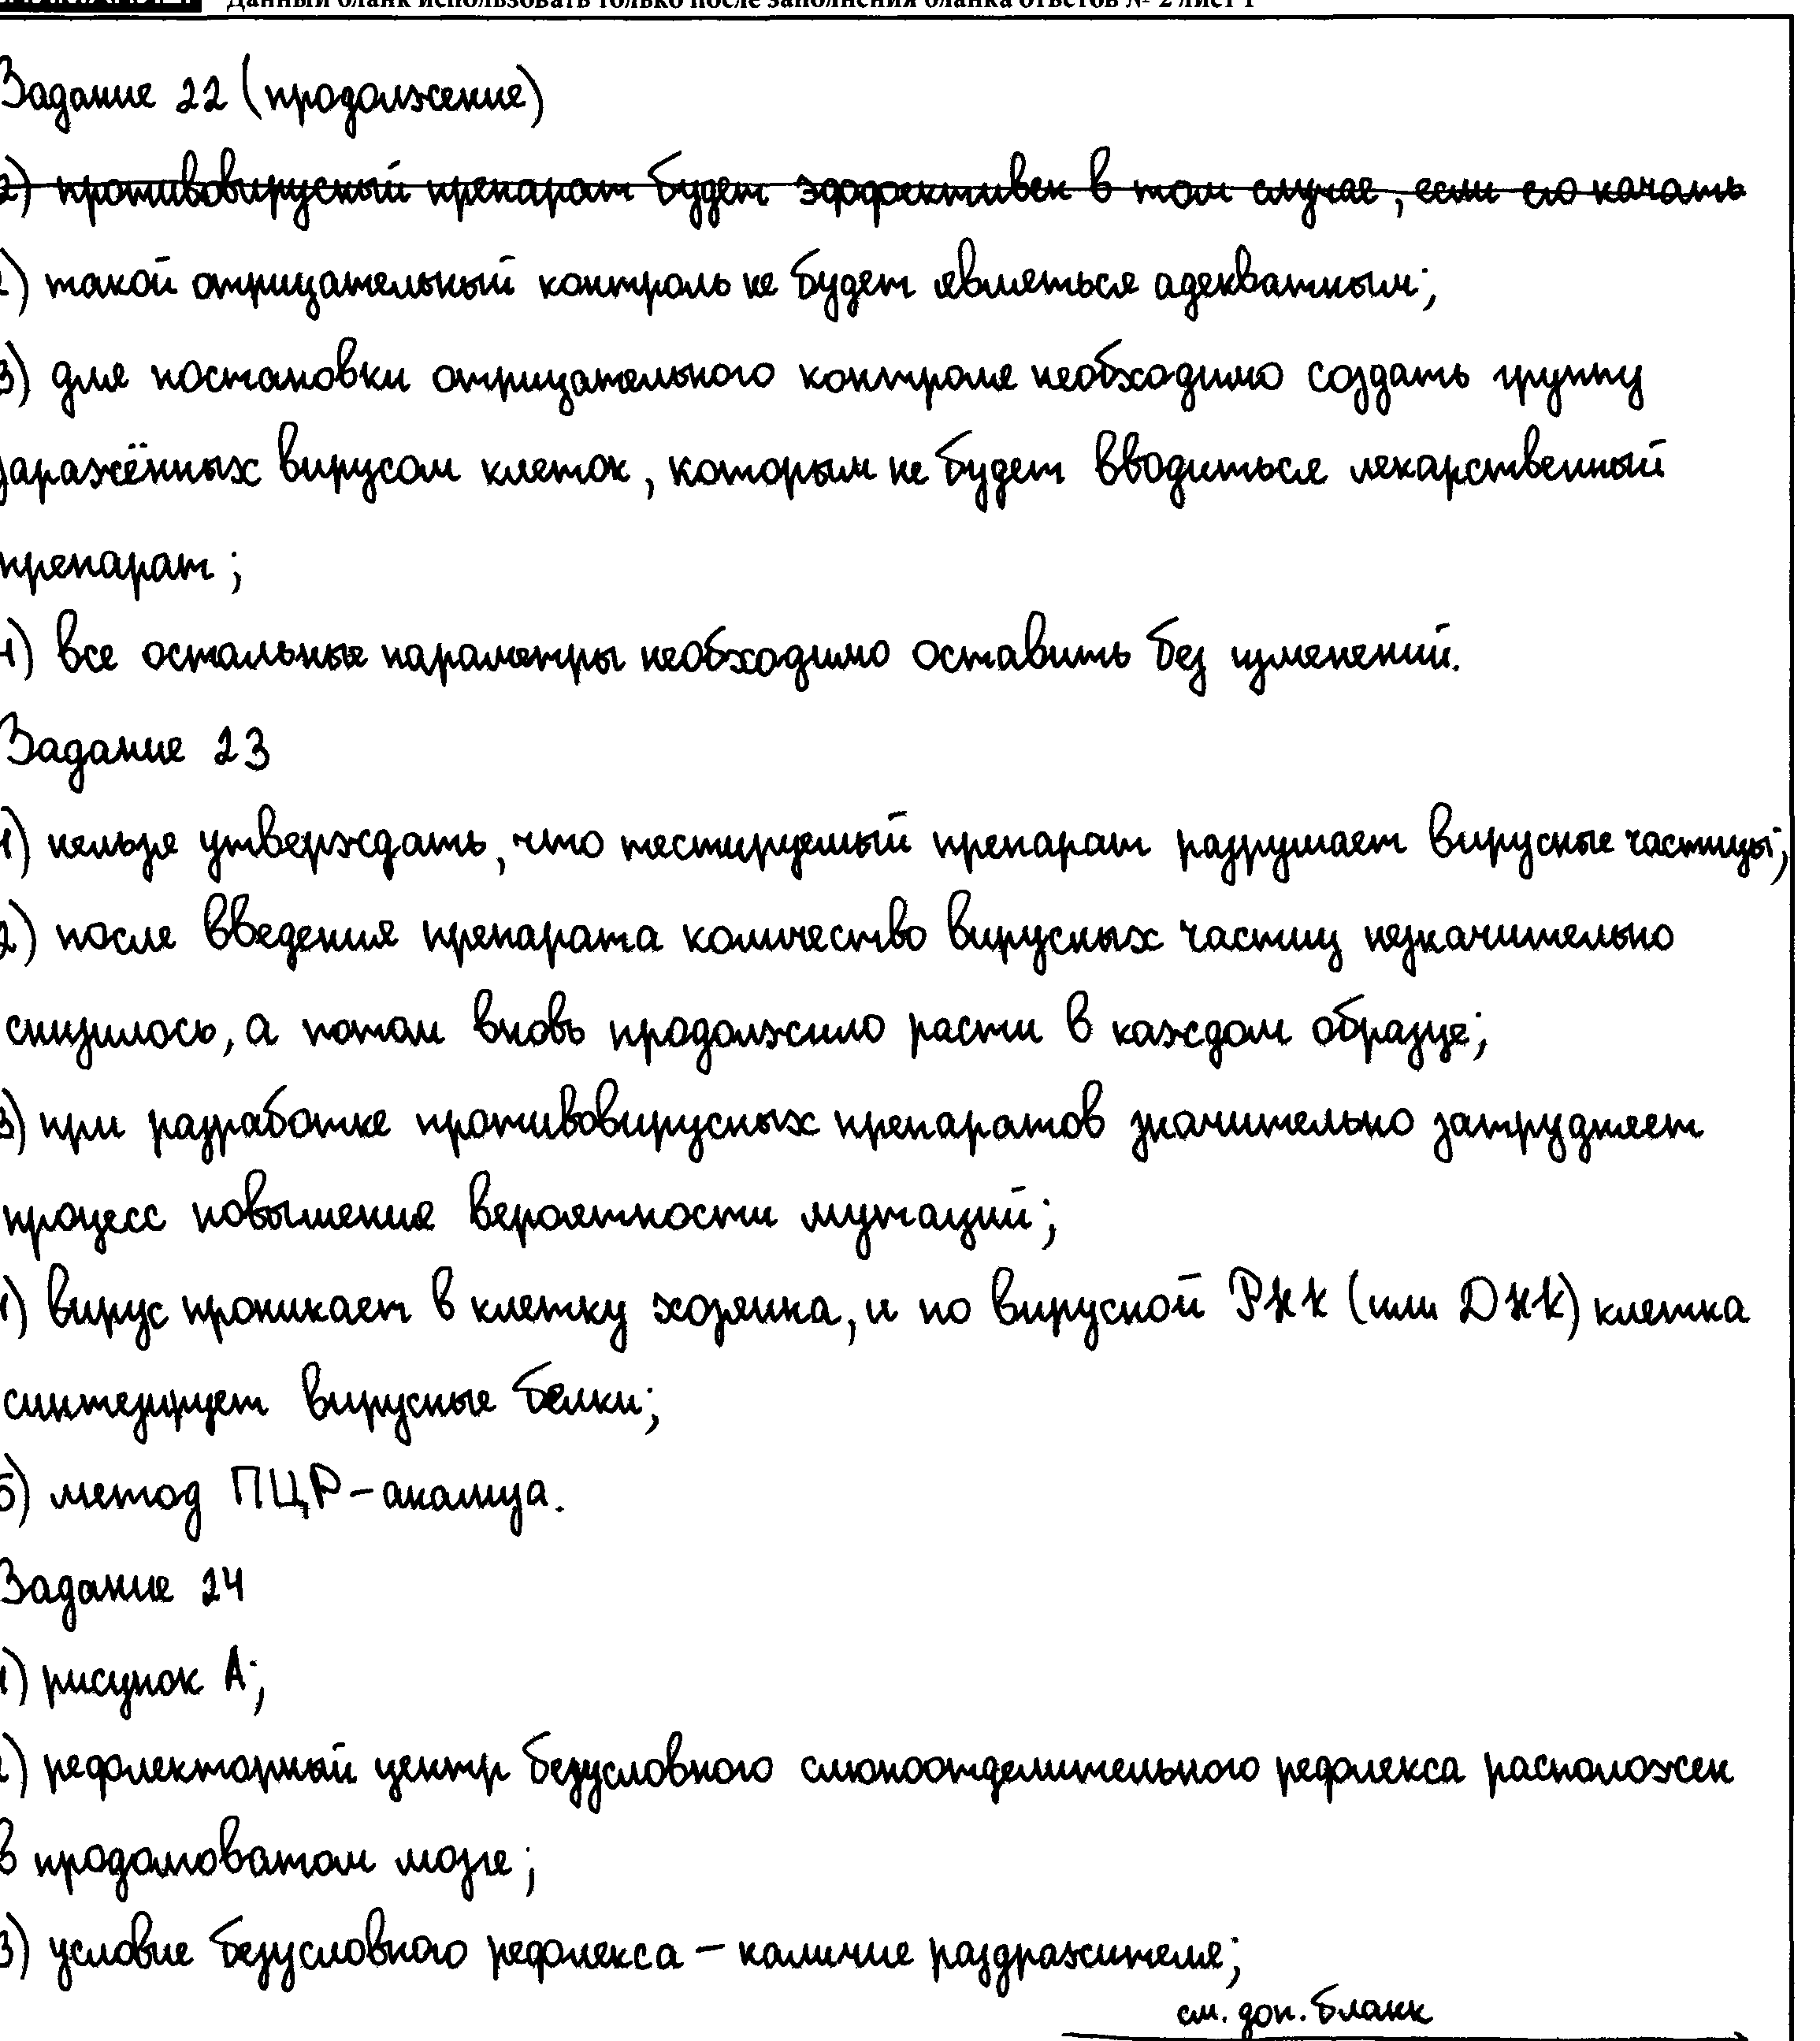 Данный бланк использовать только после заполнения бланка ответов № 2 лист 1
Задание 22 (продолжение)
2) противовирусный препарат будет эффективен в том случае, если его начать
2) такой отрицательный контроль не будет являться адекватным;
3) для постановки отрицательного контроля необходимо создать группу
заражённых вирусом клеток, которым не будет вводиться лекарственный
препарат;
4) все остальные параметры необходимо оставить без изменений.
Задание 23
1) нельзя утверждать, что тестируемый препарат разрушает вирусные частицы;
2) после введения препарата количество вирусных частиц незначительно
снизилось, а потом вновь продолжило расти в каждом образце;
3) при разработке противовирусных препаратов значительно затрудняет
процесс повышения вероятности мутаций;
4) вирус проникает в клетку хозяина, и по вирусной РНК (или ДНК) клетка
синтезирует вирусные белки;
5) метод ПЦР-анализа.
Задание 24
1) рисунок А;
2) рефлекторный центр безусловного слюноотделительного рефлекса расположен
в продолговатом мозге;
3) условие безусловного рефлекса – наличие раздражителя;
см. доп. бланк